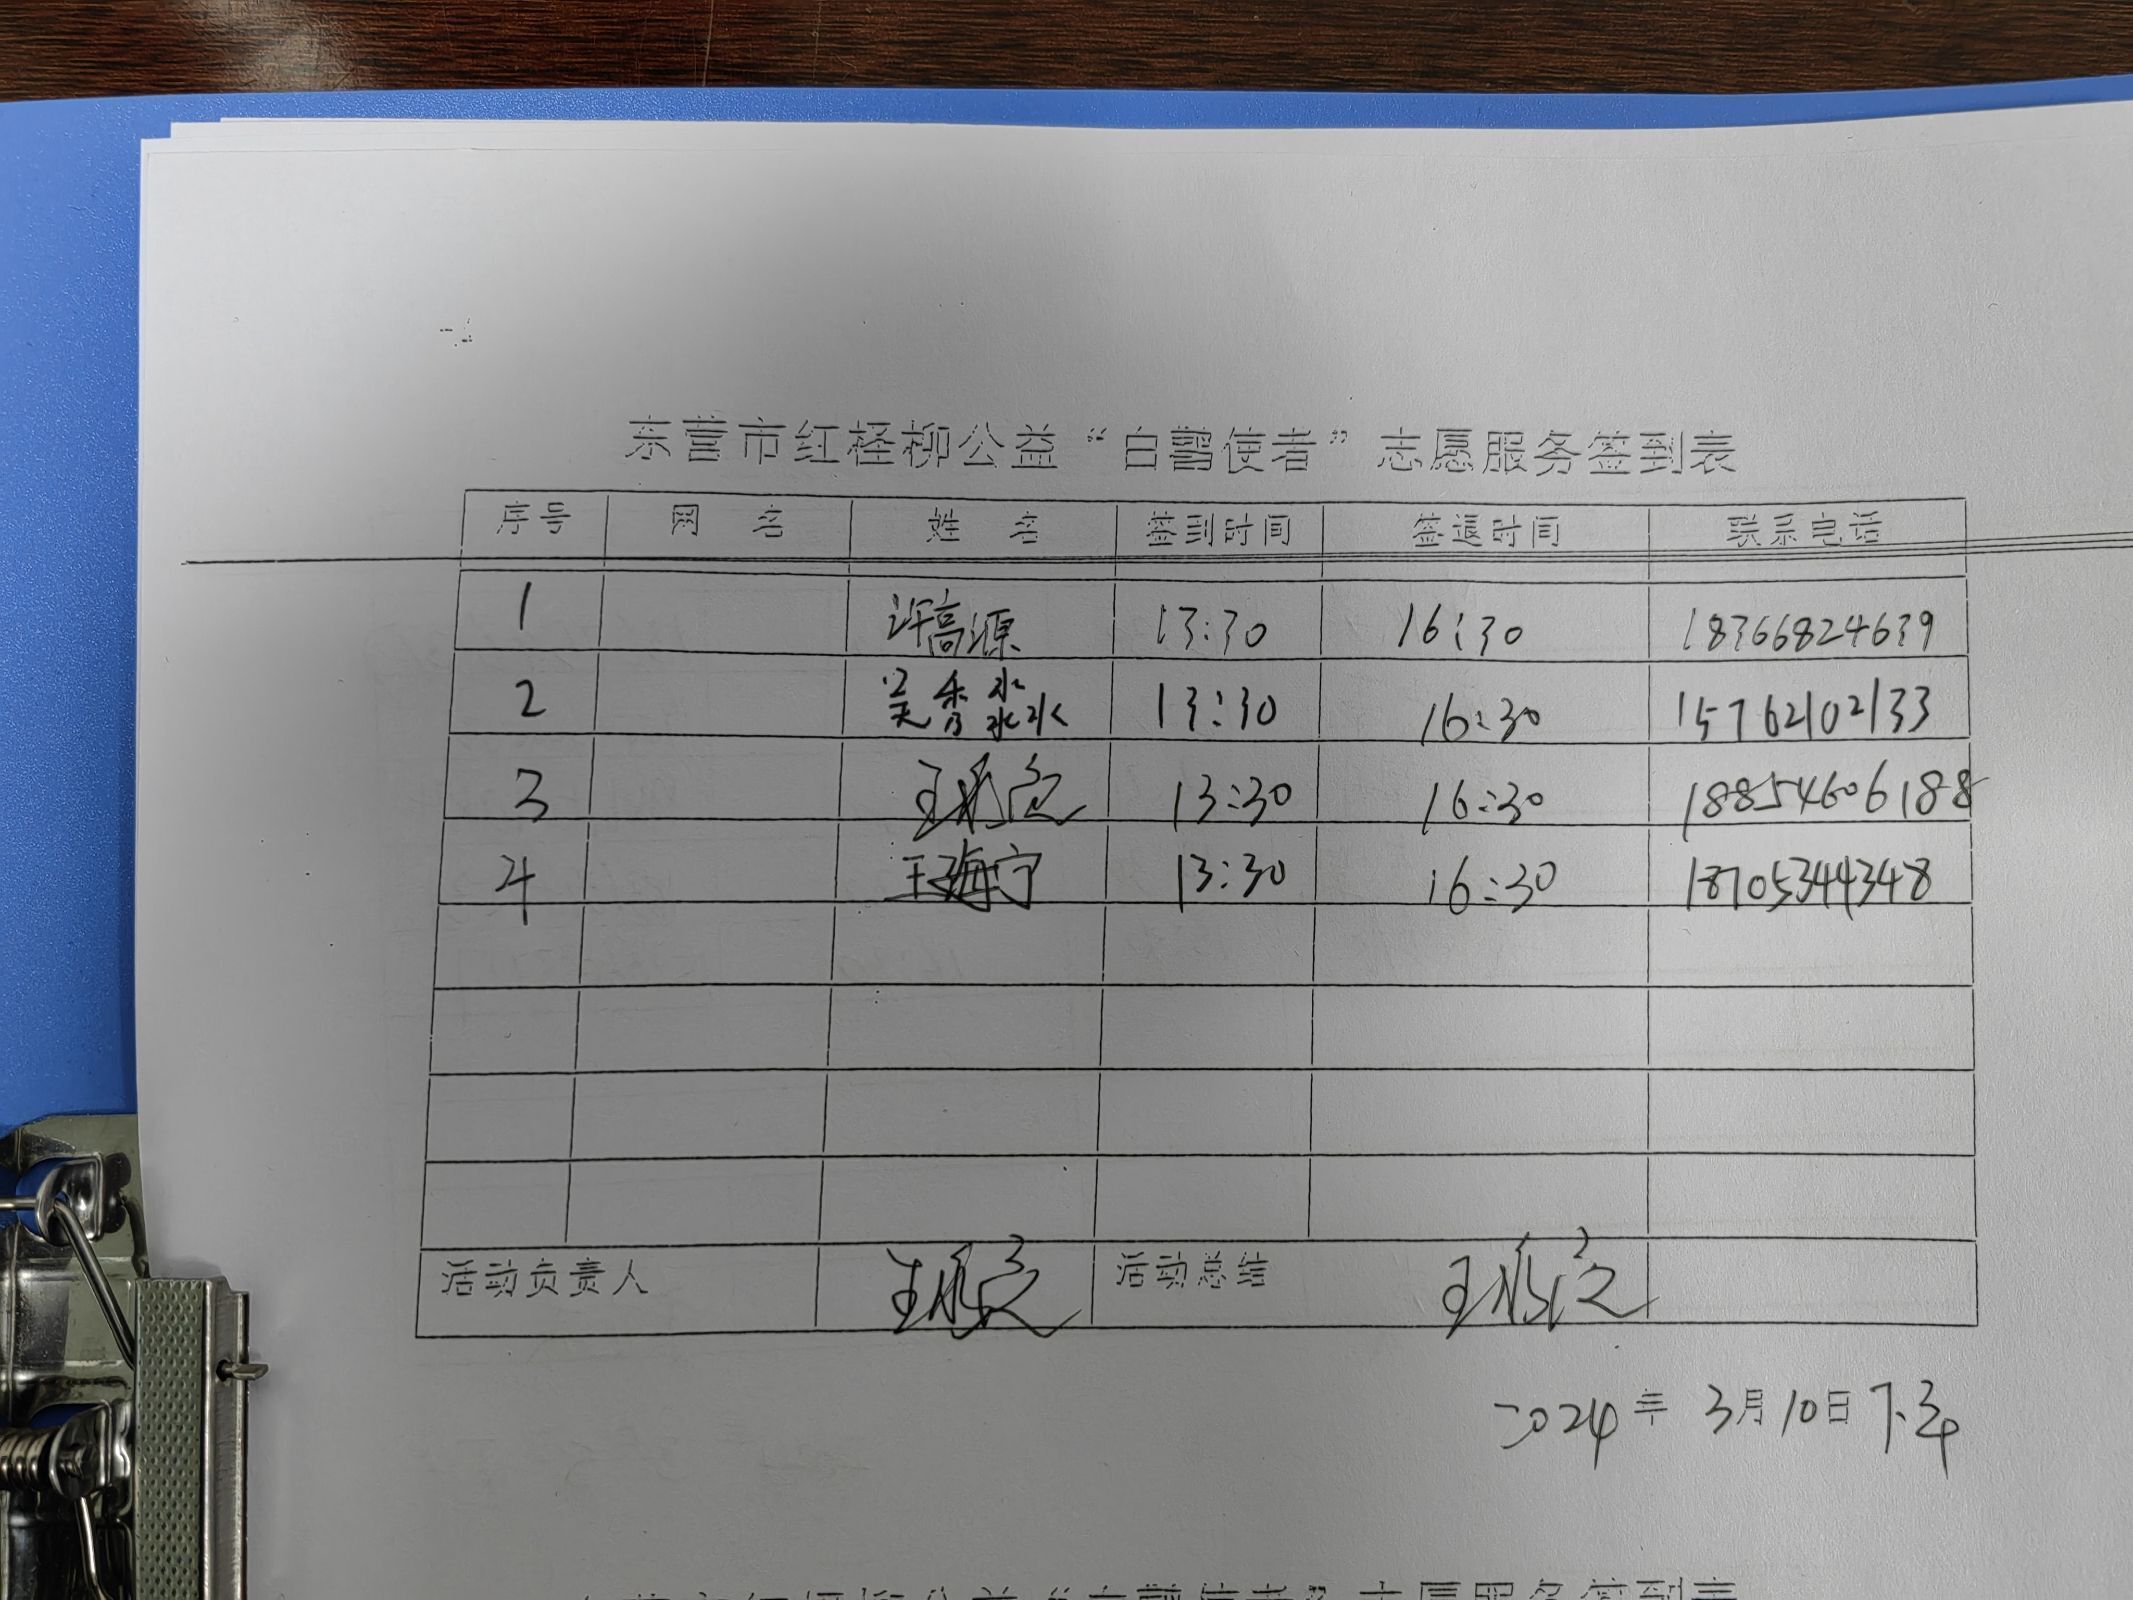 东营市红柽柳公益“白鹭使者”志愿服务签到表
序号 网名 姓名 签到时间 签退时间 联系电话
1 许高源 13:30 16:30 18366824639
2 吴香淼 13:30 16:30 15762102133
3 13:30 16:30 18854606188
4 王海宁 13:30 16:30 18705344348
活动负责人 活动总结
2024年 3月10日下午
东营市红柽柳公益“白鹭使者”志愿服务签到表